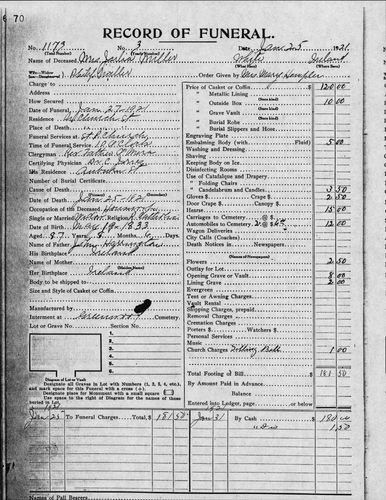 70
RECORD OF FUNERAL.
No. 1178 No. 3 Date Jan 25 1921
(Total Number) (Yearly Number)
Name of Deceased Mrs Julia Miller White Ireland
(What Race) (Where Born)
Philip Miller Order Given by Mrs Mary
Charge to
Address
How Secured
Date of Funeral Jan 27 1921
Residence Church St
Place of Death
Funeral Services at St P Church
Time of Funeral Services 10 O'Clock
Clergyman Rev Father O'Mara
Certifying Physician Dr. C. Jones
His Residence
Number of Burial Certificate
Cause of Death
Date of Death Jan 25 - 1921
Occupation of the Deceased
Single or Married Widow Religion R. Catholic
Date of Birth May 19 - 1833
Aged 87 Years 8 Months 6 Days
Name of Father John
His Birthplace Ireland
Name of Mother
(Maiden Name)
Her Birthplace Ireland
Body to be shipped to
Size and Style of Casket or Coffin
Manufactured by
Interment at Cemetery.
Lot or Grave No. Section No.
1.
2.
3.
4.
5.
6.
Diagram of Lot or Vault
Designate all Graves in Lot with Numbers (1, 2, 3, 4, etc.), and mark space for this Funeral with a cross (+).
Designate place for Monument with a small square
Use space to right of Diagram for the names of those buried in Lot.
Price of Casket or Coffin 120 00
" Metallic Lining
" Outside Box 10 00
" Grave Vault
" Burial Robe
" Burial Slippers and Hose
Engraving Plate
Embalming Body (with Fluid) 5 00
Washing and Dressing
Shaving
Keeping Body on Ice
Disinfecting Rooms
Use of Catafalque and Drapery
" Folding Chairs
" Candelabrum and Candles 3 50
Gloves $ Crape $ 2 50
Door Crape Canopy
Hearse 15 00
Carriages to Cemetery @ $
Automobiles to Cemetery 2 @ $6.00 12 00
Wagon Deliveries
City Calls (Coaches)
Death Notices in Newspapers
Flowers 2 50
Outlay for Lot
Opening Grave or Vault 8 00
Lining Grave 2 00
Evergreen
Tent or Awning Charges
Vault Rental
Shipping Charges, prepaid
Removal Charges
Cremation Charges
Porters $ Watchers $
Personal Services
Music
Church Charges Tolling Bell 1 00
Total Footing of Bill 181 50
By Amount Paid in Advance
Balance
Entered into Ledger, page or below:
Jan 25 To Funeral Charges, Total, $ 181 50 Jan 31 By Cash 180 00
1.50
Names of Pall Bearers